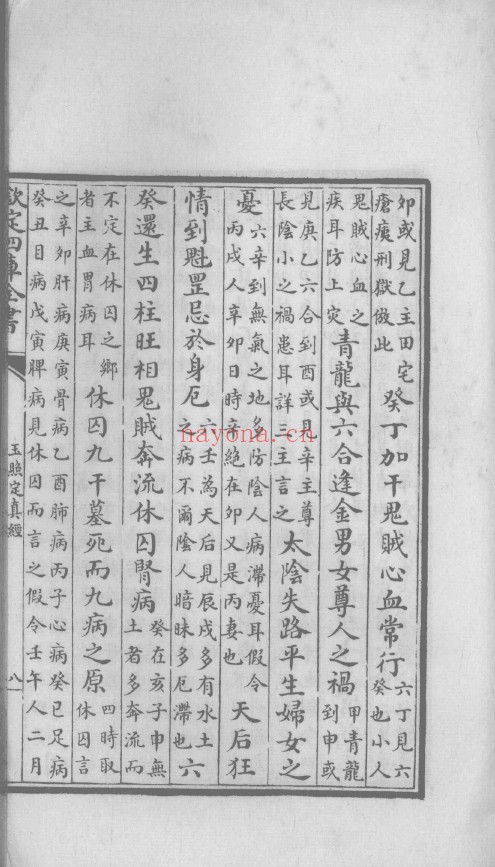 卯或見乙主田宅
瘡痍刑獄倣此
癸丁加干鬼賊心血常行
六丁見六
癸也小人
鬼賊心血之
疾耳防上灾
青龍與六合逢金男女尊人之禍
甲青龍
到申或
見庚乙六合到酉或見辛主尊
長陰小之禍患耳詳三主言之
太陰失路平生婦女之
憂
六辛到無氣之地多防陰人病滯憂耳假令
丙戌人辛卯日時辛絶在卯又是丙妻也
天后狂
情到魁罡忌於身厄
六壬為天后見辰戌多有水土
之病不爾陰人暗昧多厄滯也
六
癸還生四柱旺相鬼賊奔流休囚腎病
癸在亥子申無
土者多奔流而
不定在休囚之鄉
者主血胃病耳
休囚九干墓死而九病之原
四時取
休囚言
之辛卯肝病庚寅骨病乙酉肺病丙子心病癸巳足病
癸丑目病戊寅脾病見休囚而言之假令壬午人二月
欽定四庫全書
玉照定真經
八
nayona.cn